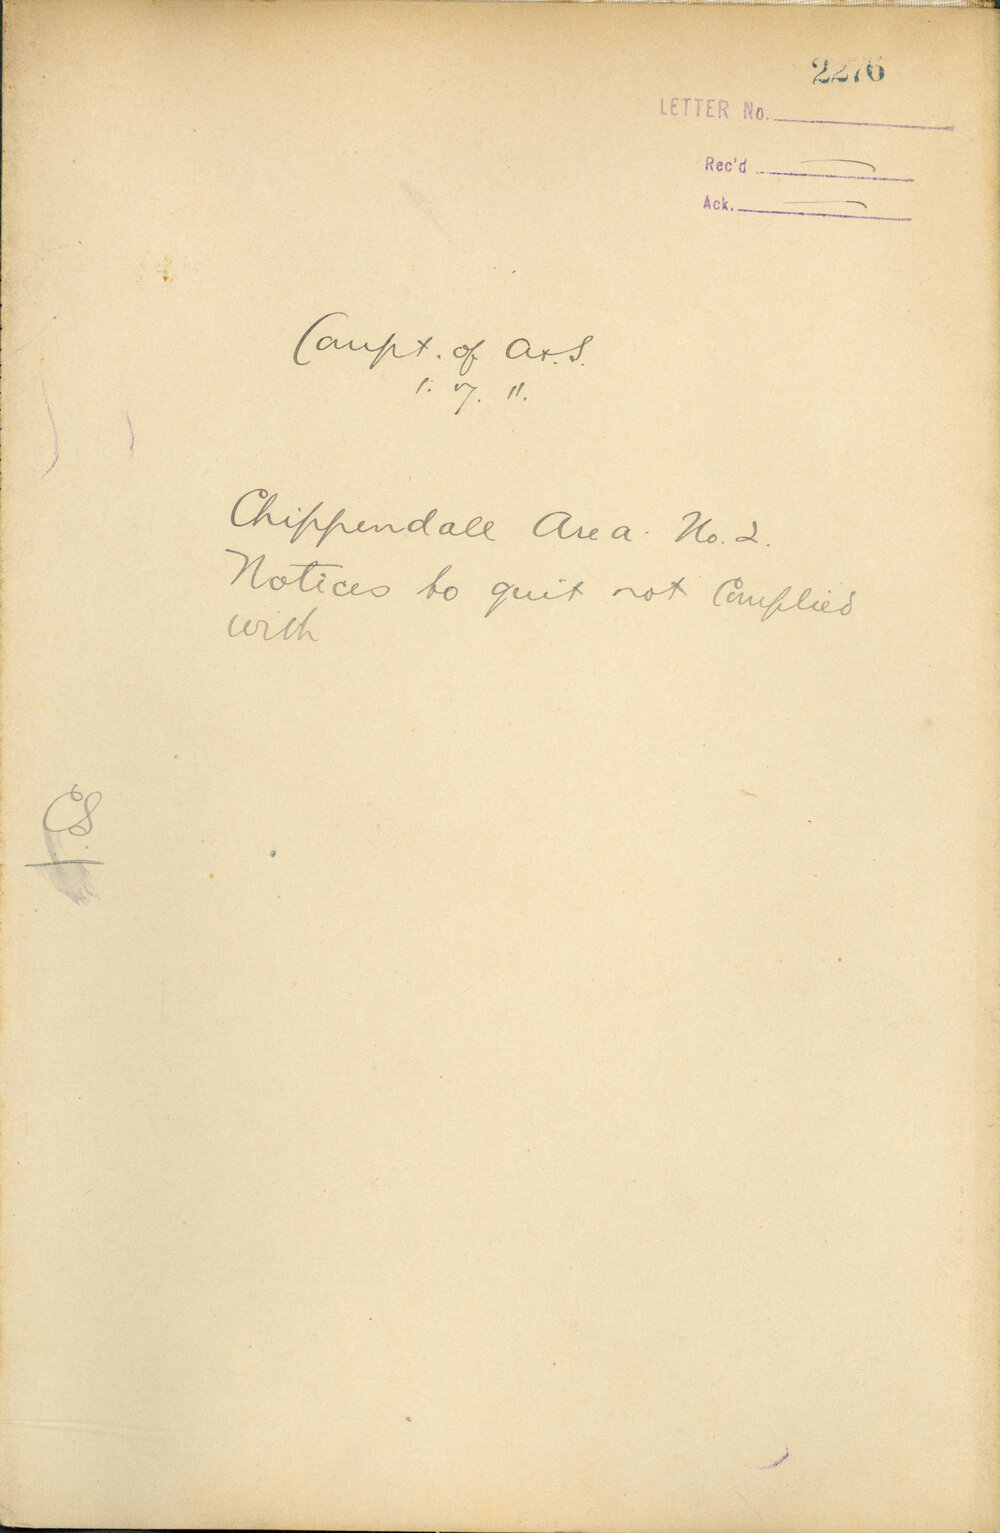 2276
LETTER No.
Rec'd
Ack.
Compt. of A+.S.
1. 7. 11.
Chippendale Area. No. 2.
Notices to quit not Complied
with
CS